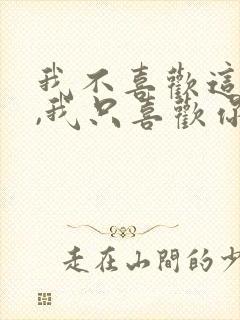 我不喜歡這
,我只喜歡你
走在山間的少